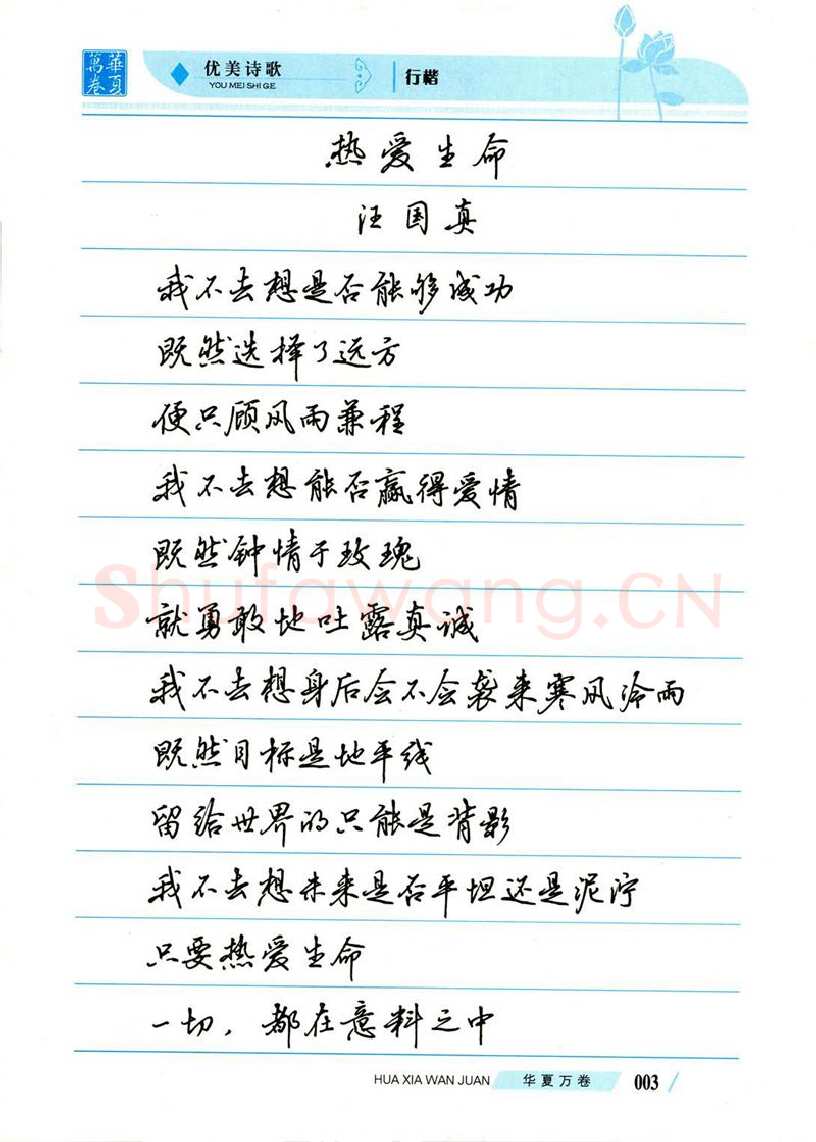 華夏萬卷
优美诗歌 行楷
YOU MEI SHI GE
热爱生命
汪国真
我不去想是否能够成功
既然选择了远方
便只顾风雨兼程
我不去想能否赢得爱情
既然钟情于玫瑰
就勇敢地吐露真诚
shufawang.CN
我不去想身后会不会袭来寒风冷雨
既然目标是地平线
留给世界的只能是背影
我不去想未来是否平坦还是泥泞
只要热爱生命
一切，都在意料之中
HUA XIA WAN JUAN 华夏万卷 003